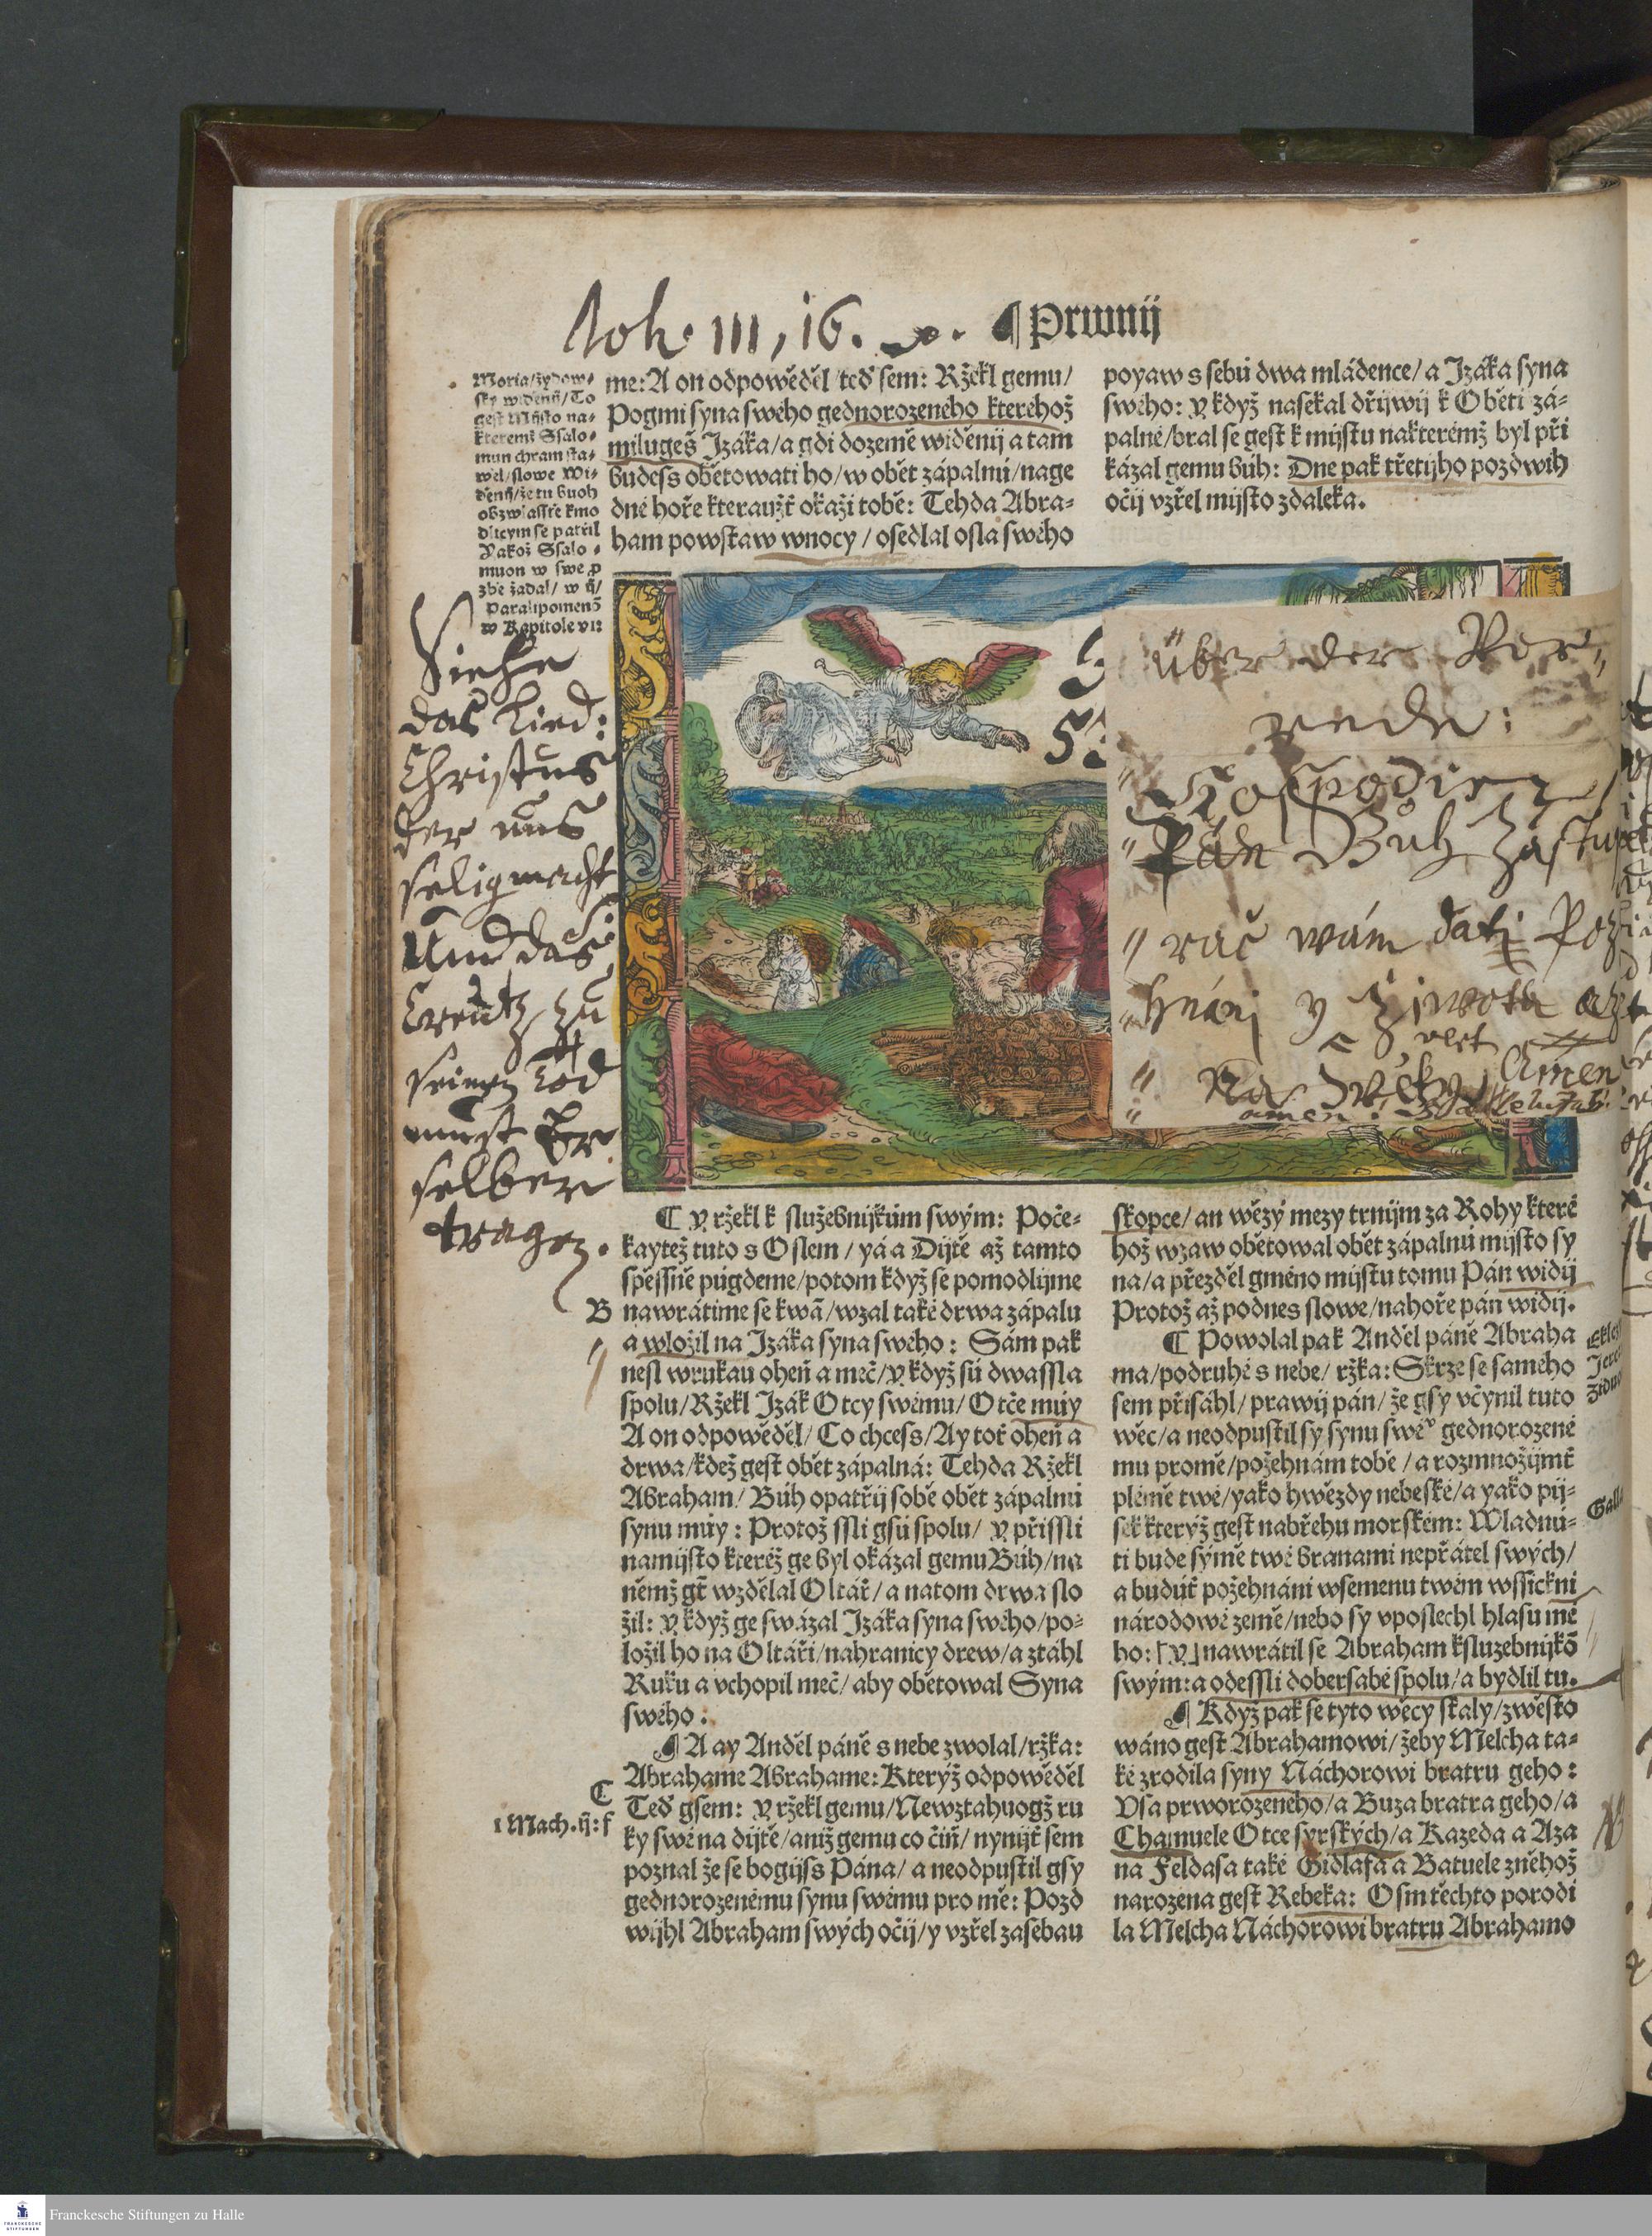 Joh. III, 16.
¶ Prwnij
Moria/žydow-
sky widěnij/To
gest Mijsto na-
kteremž Ssalo-
mun chram sta-
wěl/slowe Wi-
děnij/že tu buoh
obzwlasstře kmo
dlicymse patřil
Yakož Ssalo-
muon w swe p
zbě žadal/ w ij/
Paralipomenō
w Kapitole vii
me: A on odpowěděl/teď sem: Ržekl gemu/
Pogmi syna swého gednorozeného kteréhož
milugeš Izáka/a gdi dozemě widěnij a tam
budess obětowati ho/w obět zápalnú/nage
dné hoře kteraužť okaži tobě: Tehda Abra-
ham powstaw wnocy/osedlal osla swého
poyaw s sebú dwa mládence/a Izáka syna
swého: Y když nasekal dřijwij k Oběti zá-
palné/bral se gest k mijstu nakterémž byl při
kázal gemu búh: Dne pak třetijho pozdwih
očij vzřel mijsto zdaleka.
Siehe
das Lied:
Christus
der uns
selig macht
Und das
Creutz zu
seinem Tod
must Er
selber
tragen.
über der Vor-
rede:
Hospodin
Pán Bůh Zástup
rač wám datj Pož
hnánj y Žiwota až
Na Wěky Amen
amen.
¶ Y ržekl k služebnijkúm swým: Poče-
kaytež tuto s Oslem/yá a Dijtě až tamto
spěssně púgdeme/potom když se pomodlijme
B nawrátime se kwā/wzal také drwa zápalu
a wložil na Izáka syna swého: Sám pak
nesl wrukau oheň a meč/Y když sú dwa ssla
spolu/Ržekl Izák Otcy swému/Otče múy
A on odpowěděl/Co chcess/Ay toť oheň a
drwa/kdež gest obět zápalná: Tehda Ržekl
Abraham/Búh opatřij sobě obět zápalnú
synu múy: Protož ssli gsú spolu/ Y přissli
namijsto kteréž ge byl okázal gemu Búh/na
němž gť wzdělal Oltář/a natom drwa slo
žil: Y když ge swázal Izáka syna swého/po-
ložil ho na Oltáři/nahranicy drew/a ztáhl
Ruku a vchopil meč/aby obětowal Syna
swého:
¶ A ay Anděl páně s nebe zwolal/ržka:
Abrahame Abrahame: Kterýž odpowěděl
C
Teď gsem: Y ržekl gemu/Newztahuogž ru
1 Mach. ij: f
ky swé na dijtě/aniž gemu co čiň/nynijť sem
poznal že se bogijss Pána/a neodpustil gsy
gednorozenému synu swému pro mě: Pozd
wijhl Abraham swých očij/y vzřel zasebau
skopce/an wězý mezy trnijm za Rohy které
hož wzaw obětowal obět zápalnú mijsto sy
na/a přezděl gméno mijstu tomu Pán widij
Protož až podnes slowe/nahoře pán widij.
¶ Powolal pak Anděl páně Abraha
ma/podruhé s nebe/ržka: Skrze se samého
sem přisáhl/prawij pán/že gsy včynil tuto
wěc/a neodpustil sy synu swé° gednorozené
mu promě/požehnám tobě/a rozmnožijmť
plémě twé/yako hwězdy nebeské/a yako pij-
sek kterýž gest nabřehu morském: Wladnú-
ti bude sýmě twé branami nepřátel swých/
a budúť požehnáni wsemenu twém wssickni
národowé země/nebo sy vposlechl hlasu mé
ho: [Y] nawrátil se Abraham kslužebnijkō
swým: a odessli dobersabé spolu/a bydlil tu.
¶ Když pak se tyto wěcy staly/zwěsto
wáno gest Abrahamowi/žeby Melcha ta-
ké zrodila syny Náchorowi bratru geho:
Vsa prworozeného/a Buza bratra geho/a
Chamuele Otce syrských/a Kazeda a Aza
na Feldasa také Gidlafa a Batuele zněhož
narozena gest Rebeka: Osm těchto porodi
la Melcha Náchorowi bratru Abrahamo
Franckesche Stiftungen zu Halle